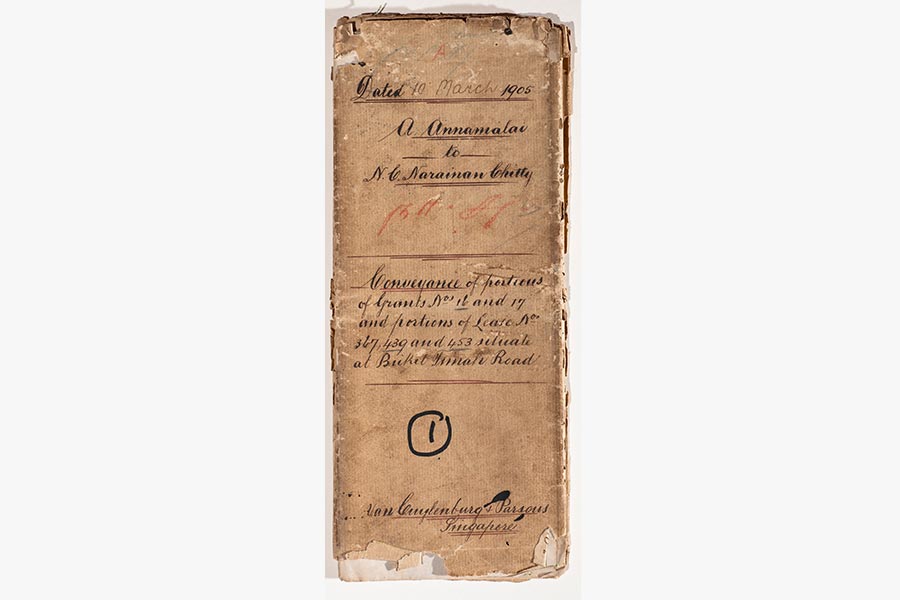 A
Dated 10 March 1905
A Annamalai
to
N. C. Narainan Chitty
Conveyance of portions
of Grants Nos 16 and 17
and portions of Lease Nos
367, 439 and 453 situate
at Bukit Timah Road
1
Van Cuylenburg & Parsons
Singapore